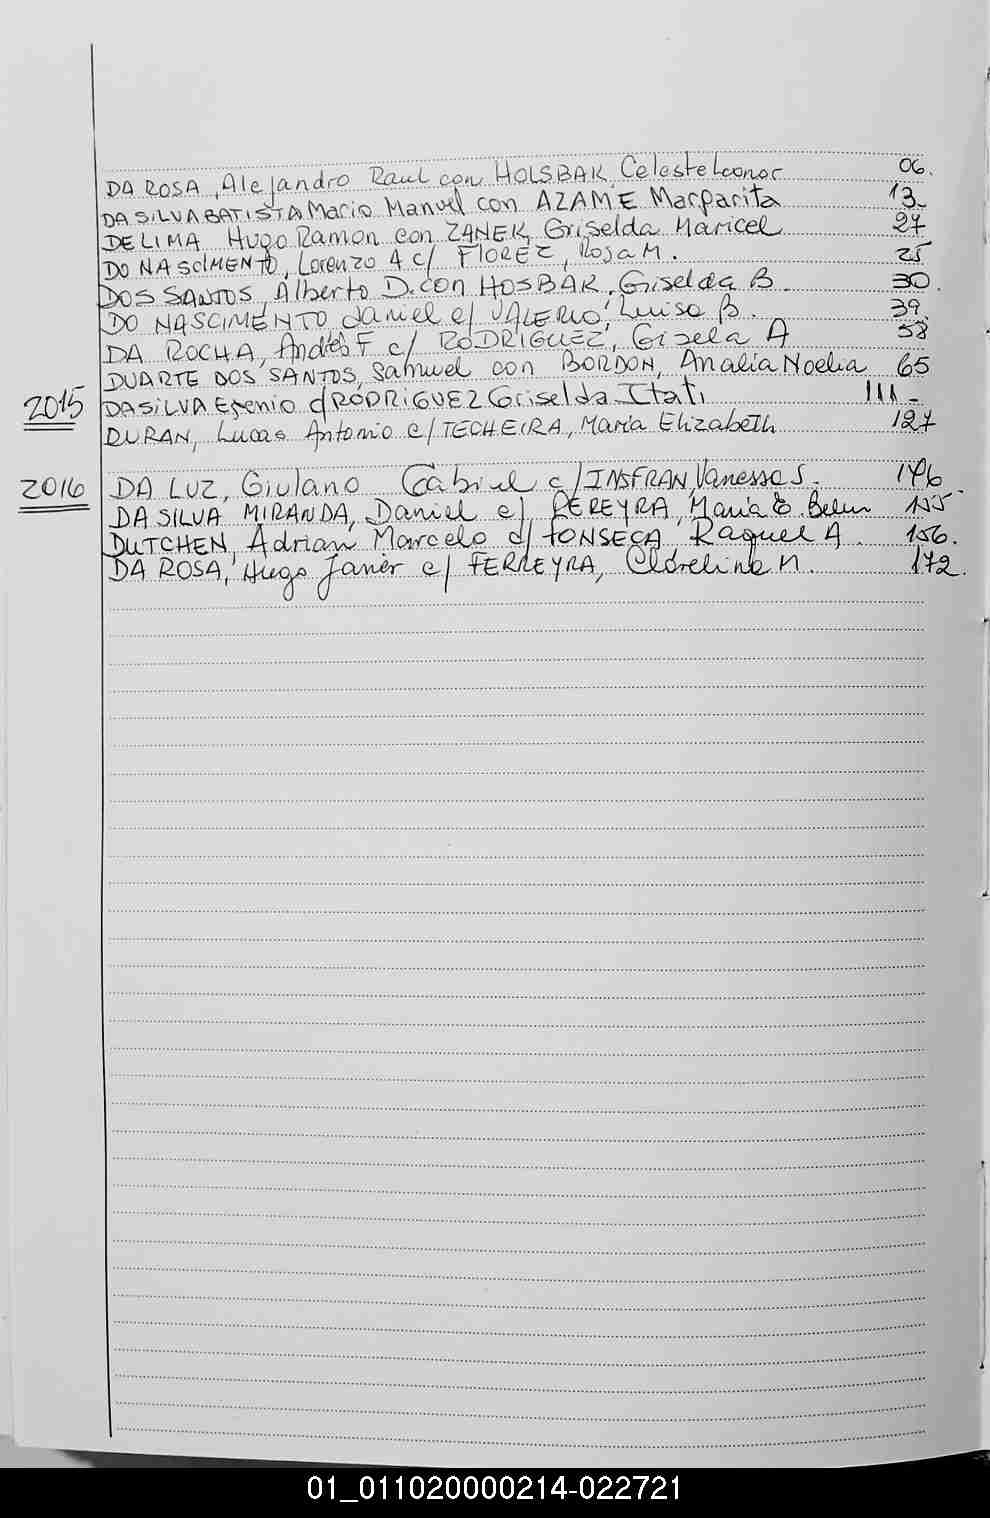 DA ROSA, Alejandro Raul con HOLSBAK, Celeste Leonor 06.
DA SILVA BATISTA Mario Manuel con AZAME Margarita 13_
DE LIMA Hugo Ramon con ZANEK, Griselda Maricel 27
DO NASCIMENTO, Lorenzo A c/ FLOREZ, Rosa M. 25
DOS SANTOS, Alberto D. con HOSBAK, Griselda B. 30.
DO NASCIMENTO Daniel c/ VALERIO, Luisa B. 39.
DA ROCHA, Andrés F c/ RODRIGUEZ, Gisela A 58
DUARTE DOS SANTOS, Samuel con BORDON, Analia Noelia 65
2015 DA SILVA Eugenio c/ RODRIGUEZ Griselda Itati 111_
DURAN, Lucas Antonio c/ TECHEIRA, Maria Elizabeth 127
2016 DA LUZ, Giulano Gabriel c/ INSFRAN, Vanessa S. 146.
DA SILVA MIRANDA, Daniel c/ PEREYRA, Maria Belen 155
DUTCHEN, Adrian Marcelo c/ FONSECA Raquel A. 156.
DA ROSA, Hugo Javier c/ FERREYRA, 172.
01_011020000214-022721